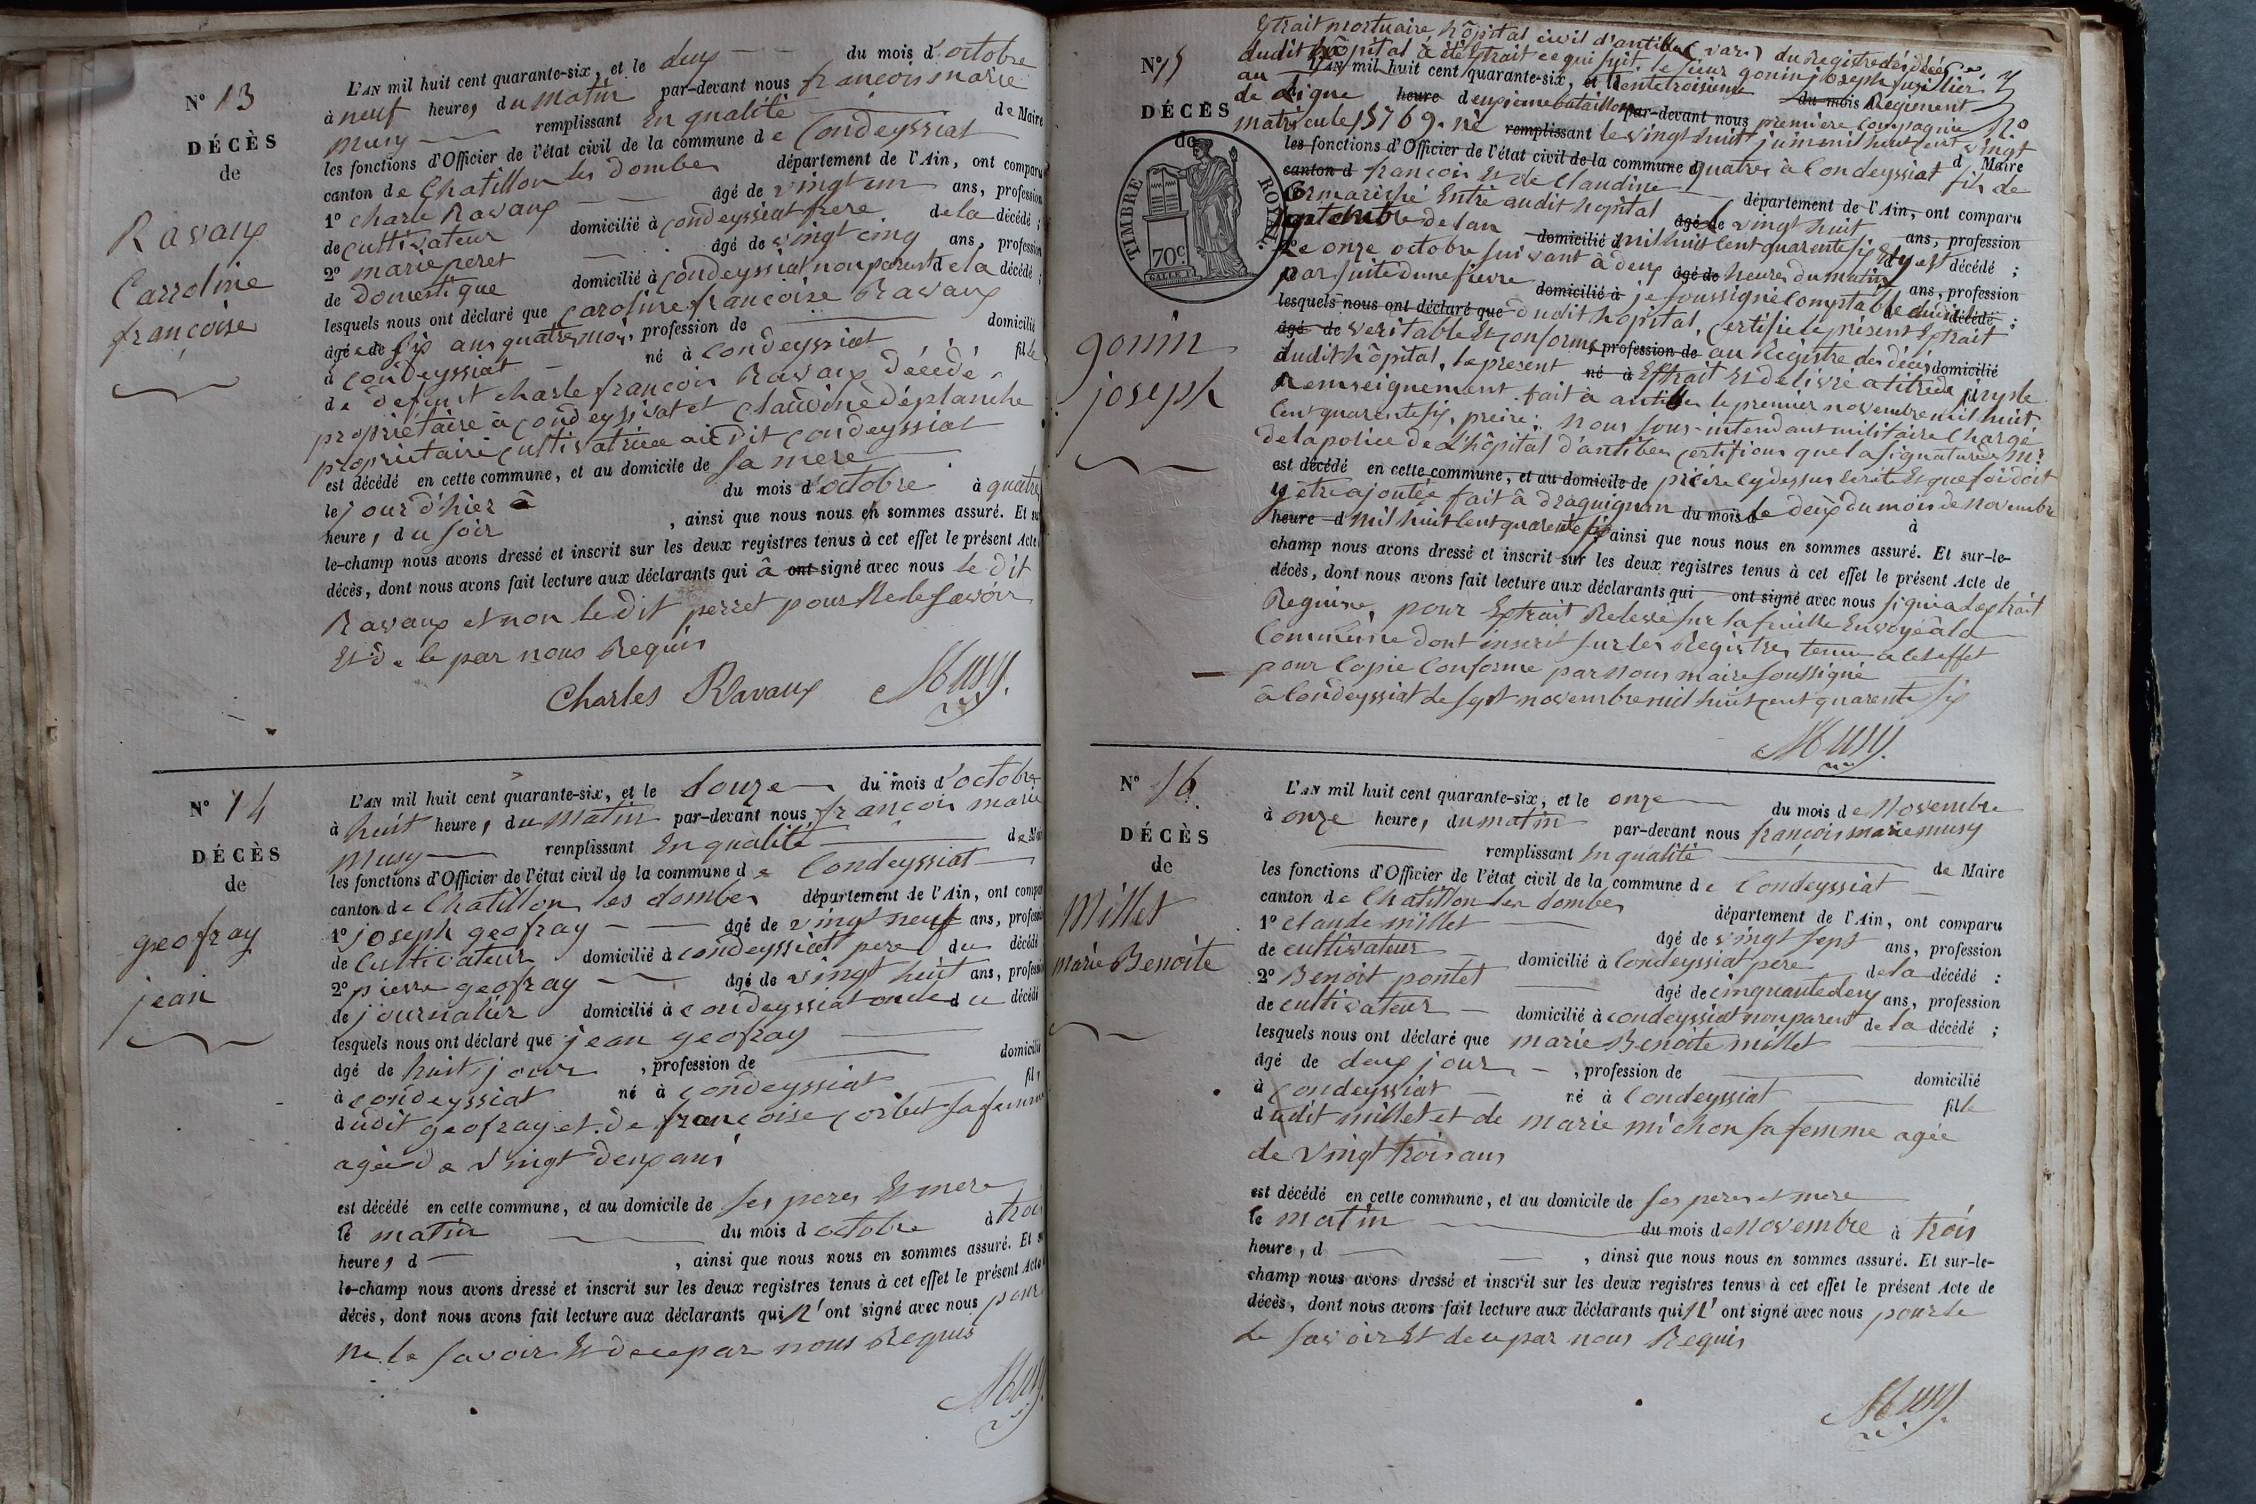 N° 13
DÉCÈS
de
Ravaux
Carroline
françoise
L'AN mil huit cent quarante-six, et le deux du mois d'octobre
à neuf heures du matin par-devant nous françois marie
musy remplissant En qualité de Maire
les fonctions d'Officier de l'état civil de la commune de Condeyssiat
canton de Chatillon les dombes département de l'Ain, ont comparu
1° charle Ravaux âgé de vingt un ans, profession
de cultivateur domicilié à condeyssiat frere de la décédé ;
2° marie peret âgé de vingt cinq ans, profession
de domestique domicilié à condeyssiat non parent de la décédé ;
lesquels nous ont déclaré que caroline françoise Ravaux
âgée de six ans quatre mois, profession de domicilié
à condeyssiat né à condeyssiat fille
de defunt charle françois Ravaux décédé
propriétaire à condeyssiat et claudine déplanche
propriétaire cultivatrice audit condeyssiat
est décédé en cette commune, et au domicile de sa mere
le jour d'hier du mois d'octobre à quatre
heure, du soir , ainsi que nous nous en sommes assuré. Et sur
le-champ nous avons dressé et inscrit sur les deux registres tenus à cet effet le présent Acte
décès, dont nous avons fait lecture aux déclarants qui à ont signé avec nous le dit
Ravaux et non le dit perret pour ne le savoir
Et de ce par nous Requis
Charles Ravaux Musy.
N° 14
DÉCÈS
de
geofray
jean
L'AN mil huit cent quarante-six, et le douze du mois d'octobre
à huit heure, du matin par-devant nous françois marie
musy remplissant En qualité de Mai
les fonctions d'Officier de l'état civil de la commune de Condeyssiat
canton de Chatillon les dombes département de l'Ain, ont compa
1° joseph geofray âgé de vingt neuf ans, profession
de Cultivateur domicilié à condeyssiat pere du décédé
2° pierre geofray âgé de vingt huit ans, profession
de journalier domicilié à condeyssiat oncle du décédé
lesquels nous ont déclaré que jean geofray
âgé de huit jour , profession de domicilié
à condeyssiat né à condeyssiat fils
dudit geofray et de françoise corbet sa femme
agée de vingt deux ans
est décédé en cette commune, et au domicile de ses peres Et mere
le matin du mois d octobre à trois
heures d , ainsi que nous nous en sommes assuré. Et s
le-champ nous avons dressé et inscrit sur les deux registres tenus à cet effet le présent Acte
décès, dont nous avons fait lecture aux déclarants qui n'ont signé avec nous pour
ne le savoir Et de ce par nous Requis
Musy.
N° 15
DÉCÈS
de
TIMBRE ROYAL
70c
gonin
joseph
Extrait mortuaire, hôpital civil d'antibes (var) du Registre des décès
dudit hôpital a été Extrait ce qui suit. le sieur gonin joseph fusilier
au L'AN mil huit cent quarante-six, et le trentetroisieme du mois d Régiment
de Ligne heure d deuxieme bataillon par-devant nous premiere compagnie N°
matricule 15769. né remplissant le vingt huit juin mil huit cent vingt
les fonctions d'Officier de l'état civil de la commune d quatre à Condeyssiat d Maire
canton d françois Et de Claudine fils de
Cormarèche Entré audit hopital département de l'Ain, ont comparu
septembre de l'an âgé de vingt huit ans, profession
domicilié à mil huit cent quarente six Et y est décédé ;
Le onze octobre suivant à deux âgé de heures du matin ans, profession
par suite d'une fievre domicilié à je soussigné Comptable décédé ;
lesquels nous ont déclaré que dudit hopital, Certifie le présent Extrait
âgé de veritable Et conforme profession de au Registre des décès domicilié
dudit hôpital, le present né à Extrait Et délivré a titre de simple
Renseignement. fait à antibes le premier novembre mil huit
Cent quarente six. Nous sous-intendant militaire Chargé
de la police de l'hôpital d'antibes certifions que la signature de Mr
est décédé en cette commune, et au domicile de cy dessus Et que foi doit
y être ajoutée fait à Draguignan du mois d le deux du mois de Novembre
heure d mil huit cent quarente six ainsi que nous nous en sommes assuré. Et sur-le- à
champ nous avons dressé et inscrit sur les deux registres tenus à cet effet le présent Acte de
décès, dont nous avons fait lecture aux déclarants qui ont signé avec nous
pour Extrait Relevé sur la feuille Envoyé à la
Commune dont inscrit sur les Registres tenu a cet effet
pour Copie Conforme par nous maire soussigné
à Condeyssiat le sept novembre mil huit cent quarente six
Musy.
N° 16
DÉCÈS
de
Millet
marie Benoite
L'AN mil huit cent quarante-six, et le onze du mois de Novembre
à onze heure, du matin par-devant nous françois marie musy
remplissant En qualité de Maire
les fonctions d'Officier de l'état civil de la commune de Condeyssiat
canton de Chatillon les dombes département de l'Ain, ont comparu
1° claude millet âgé de vingt sept ans, profession
de cultivateur domicilié à Condeyssiat pere de la décédé :
2° Benoit pontet âgé de cinquante deux ans, profession
de cultivateur domicilié à condeyssiat non parent de la décédé ;
lesquels nous ont déclaré que marie Benoite millet
âgé de deux jour , profession de domicilié
à Condeyssiat né à Condeyssiat fille
dudit millet et de marie michon sa femme agée
de vingt trois ans
est décédé en cette commune, et au domicile de ses peres et mere
le matin du mois de novembre à trois
heure, d , ainsi que nous nous en sommes assuré. Et sur-le-
champ nous avons dressé et inscrit sur les deux registres tenus à cet effet le présent Acte de
décès, dont nous avons fait lecture aux déclarants qui n'ont signé avec nous pour le
le savoir Et de ce par nous Requis
Musy.